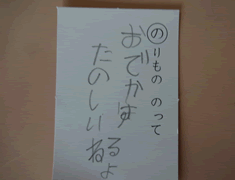 のりもの のって
おでかけ するよ
たのしいね